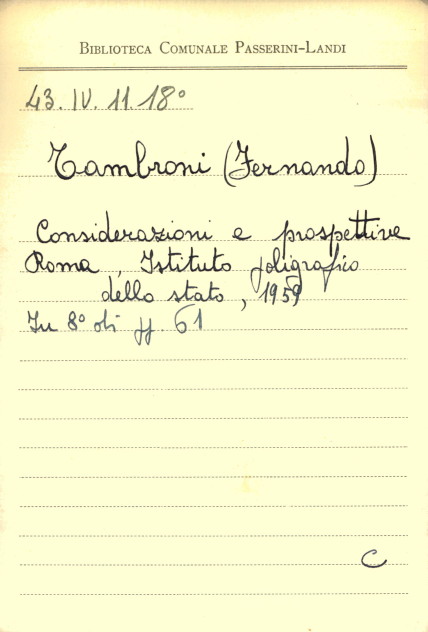 BIBLIOTECA COMUNALE PASSERINI-LANDI
43.IV.11.18°
Tambroni (Fernando)
Considerazioni e prospettive
Roma, Istituto poligrafico
dello stato, 1959
In 8° di pp. 61
C